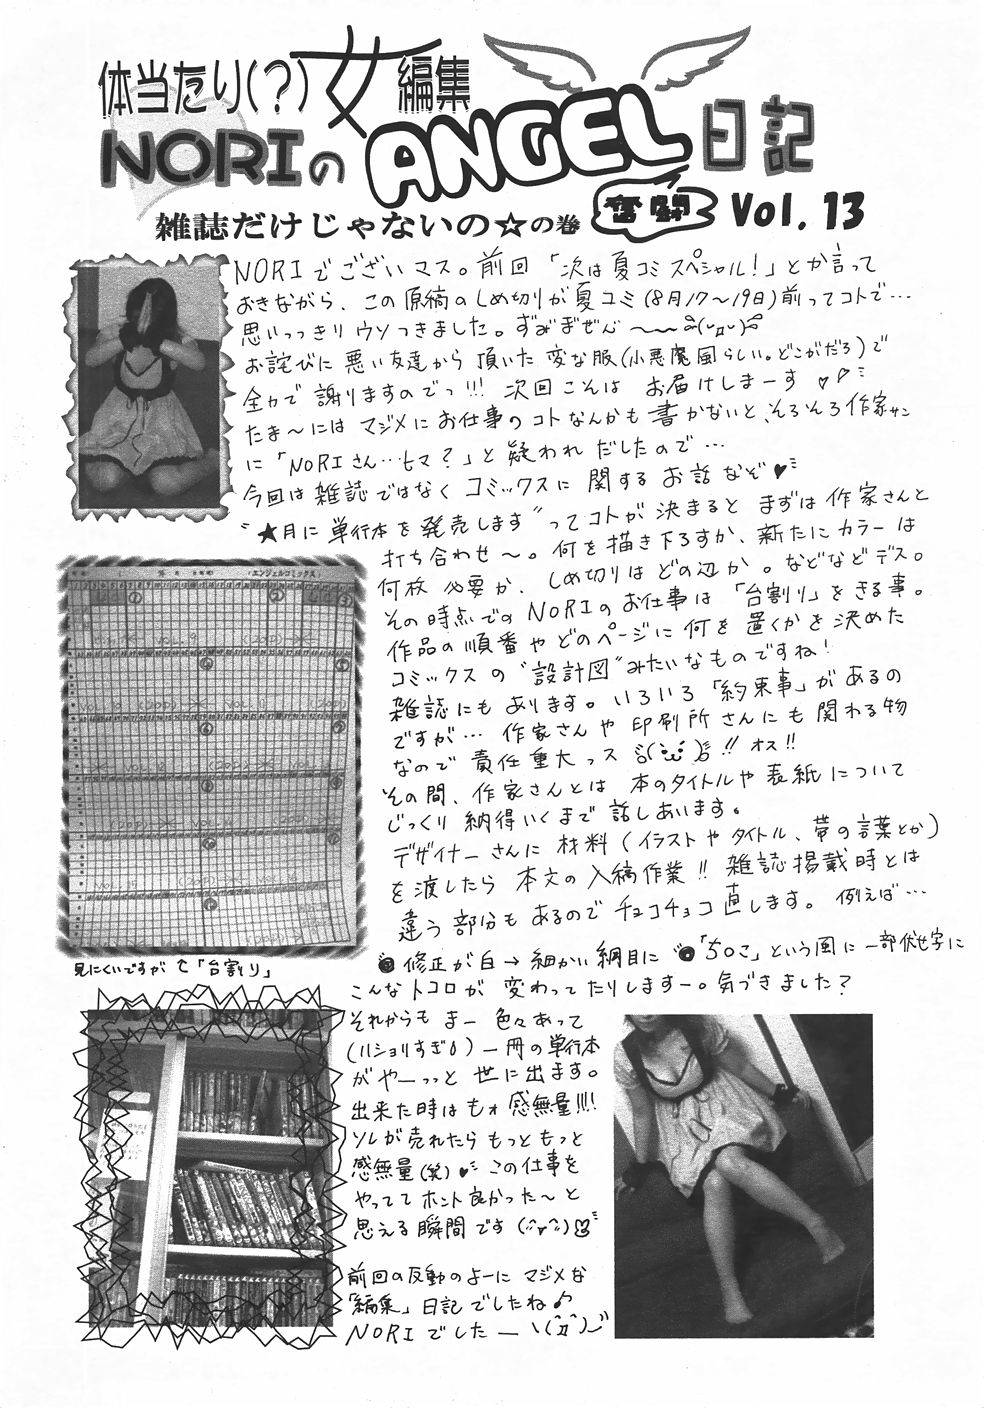 体当たり(?)女編集
NORIのANGEL日記
奮闘
Vol. 13
雑誌だけじゃないの☆の巻
NORIでございマス。前回「次は夏コミスペシャル!」とか言って
おきながら、この原稿のしめ切りが夏コミ(8月17〜19日)前ってコトで…
思いっっきりウソつきました。ずみまぜん〜〜
お詫びに悪い友達から頂いた変な服(小悪魔風らしい。どこがだろ)で
全力で謝りますのでっ!!! 次回こそは お届けしまーす♡
たま〜にはマジメにお仕事のコトなんかも書かないと、そろそろ作家サン
に「NORIさん…ヒマ?」と疑われだしたので…
今回は雑誌ではなくコミックスに関するお話なぞ♥
"★月に単行本を発売します"ってコトが決まるとまずは作家さんと
打ち合わせ〜。何を描き下ろすか、新たにカラーは
何枚必要か、しめ切りはどの辺か。などなどデス。
その時点でのNORIのお仕事は「台割り」をきる事。
作品の順番やどのページに何を置くかを決めた
コミックスの"設計図"みたいなものですね!
雑誌にもあります。いろいろ「約束事」があるの
ですが…作家さんや印刷所さんにも関わる物
なので責任重大っス!! オス!!
その間、作家さんとは本のタイトルや表紙について
じっくり納得いくまで話しあいます。
デザイナーさんに材料(イラストやタイトル、帯の言葉とか)
を渡したら本文の入稿作業!! 雑誌掲載時とは
違う部分もあるのでチョコチョコ直します。例えば…
修正が白→細かい網目に「ち○こ」という風に一部伏せ字に
こんなトコロが変わってたりしますー。気づきました?
それからもまー色々あって
(ハショリすぎ)一冊の単行本
がやーっっと世に出ます。
出来た時はもォ感無量!!!!
ソレが売れたらもっともっと
感無量(笑)♥この仕事を
やっててホント良かった〜と
思える瞬間です
前回の反動のよーにマジメな
「編集」日記でしたね♪
NORIでしたー
エンジェルコミックス
見にくいですが↑「台割り」